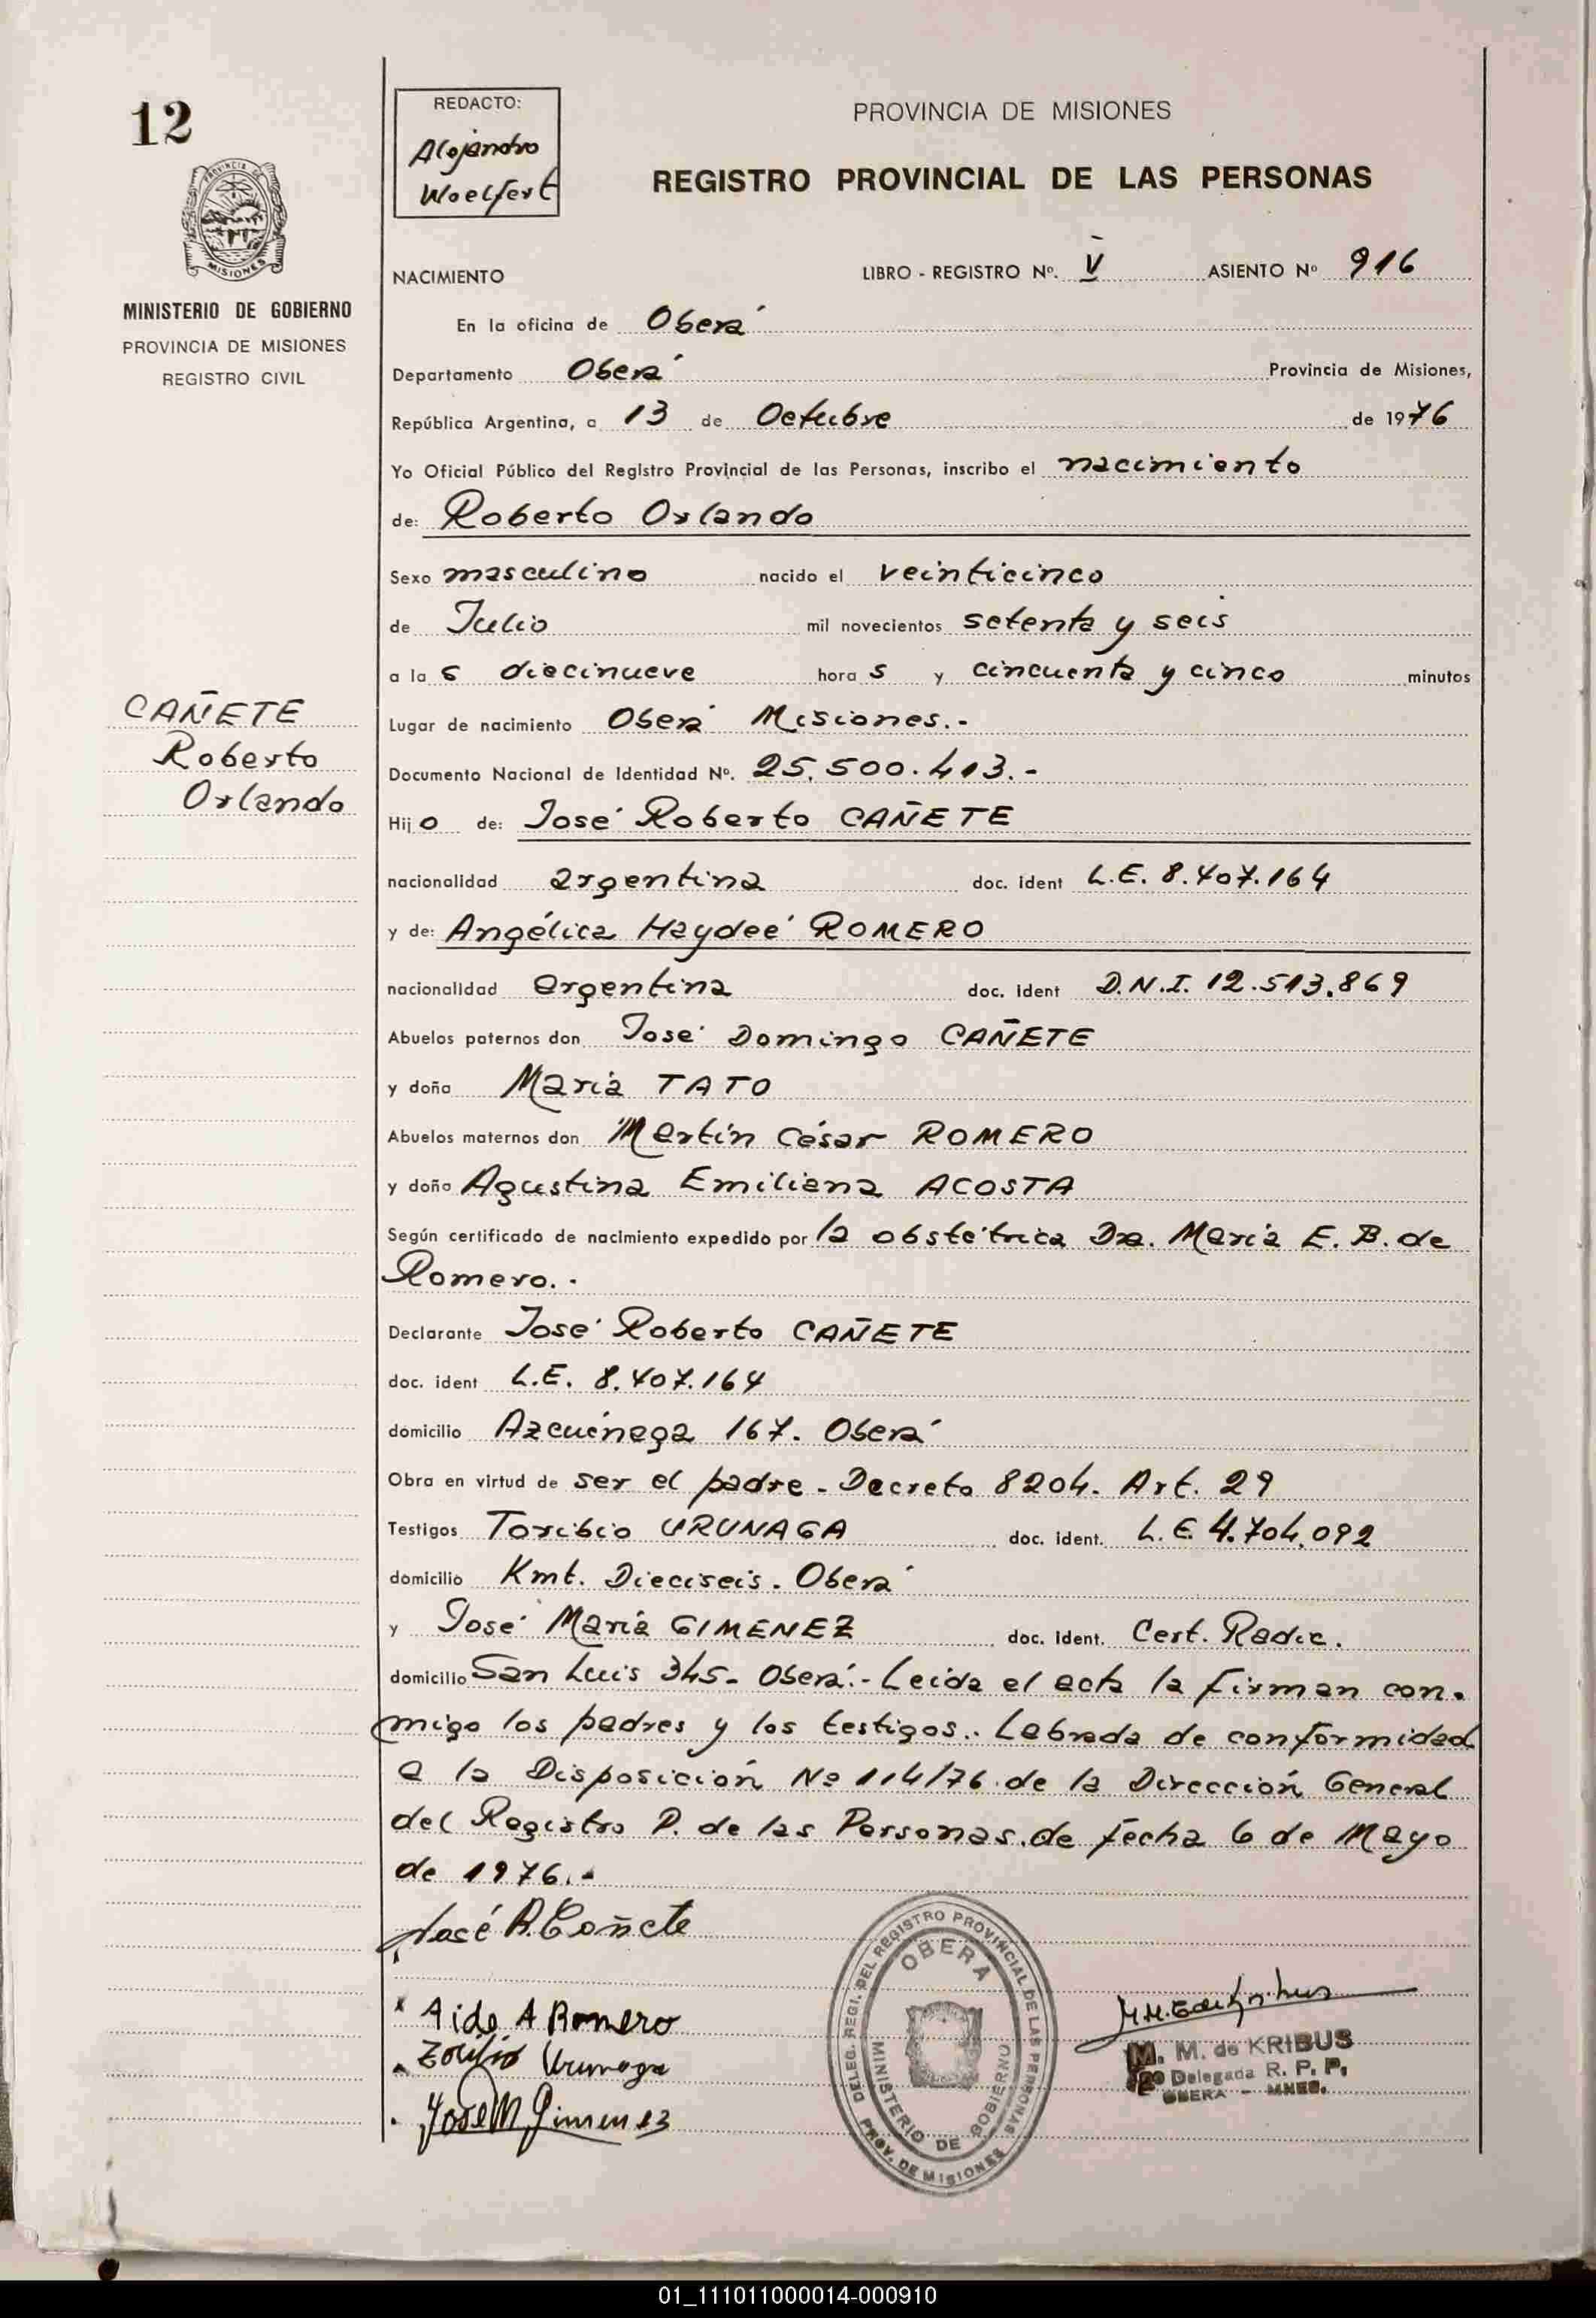 12
REDACTO:
Alejandro
Woelfert
PROVINCIA DE MISIONES
REGISTRO PROVINCIAL DE LAS PERSONAS
PROVINCIA DE
MISIONES
MINISTERIO DE GOBIERNO
PROVINCIA DE MISIONES
REGISTRO CIVIL
NACIMIENTO LIBRO - REGISTRO Nº. V ASIENTO Nº 916
En la oficina de Oberá
Departamento Oberá Provincia de Misiones,
República Argentina, a 13 de Octubre de 1976
Yo Oficial Público del Registro Provincial de las Personas, inscribo el nacimiento
de: Roberto Orlando
Sexo masculino nacido el veinticinco
de Julio mil novecientos setenta y seis
a las diecinueve horas y cincuenta y cinco minutos
CAÑETE
Roberto
Orlando
Lugar de nacimiento Oberá Misiones.-
Documento Nacional de Identidad Nº. 25.500.413.-
Hijo de: José Roberto CAÑETE
nacionalidad argentina doc. ident L.E. 8.407.164
y de: Angélica Haydeé ROMERO
nacionalidad argentina doc. ident D.N.I. 12.513.869
Abuelos paternos don José Domingo CAÑETE
y doña María TATO
Abuelos maternos don Martín César ROMERO
y doña Agustina Emiliana ACOSTA
Según certificado de nacimiento expedido por la obstétrica Dra. María E. B. de
Romero.-
Declarante José Roberto CAÑETE
doc. ident L.E. 8.407.164
domicilio Azcuénaga 167. Oberá
Obra en virtud de ser el padre - Decreto 8204. Art. 29
Testigos Toribio URUNAGA doc. ident. L.E. 4.704.092
domicilio Kmt. Dieciseis. Oberá
y José María GIMENEZ doc. ident. Cert. Radic.
domicilio San Luis 345- Oberá.- Leída el acta la firman con-
migo los padres y los testigos.. Labrada de conformidad
a la Disposición Nº 114/76 de la Dirección General
del Registro P. de las Personas, de fecha 6 de Mayo
de 1976.-
José R. Cañete
x Aide A Romero
Urunaga
José M Gimenez
DELEG. REGI. DEL REGISTRO PROVINCIAL DE LAS PERSONAS
OBERA
MINISTERIO DE GOBIERNO
PROV. DE MISIONES
M. M. de KRIBUS
Delegada R. P. P.
OBERA - MNES.
01_111011000014-000910